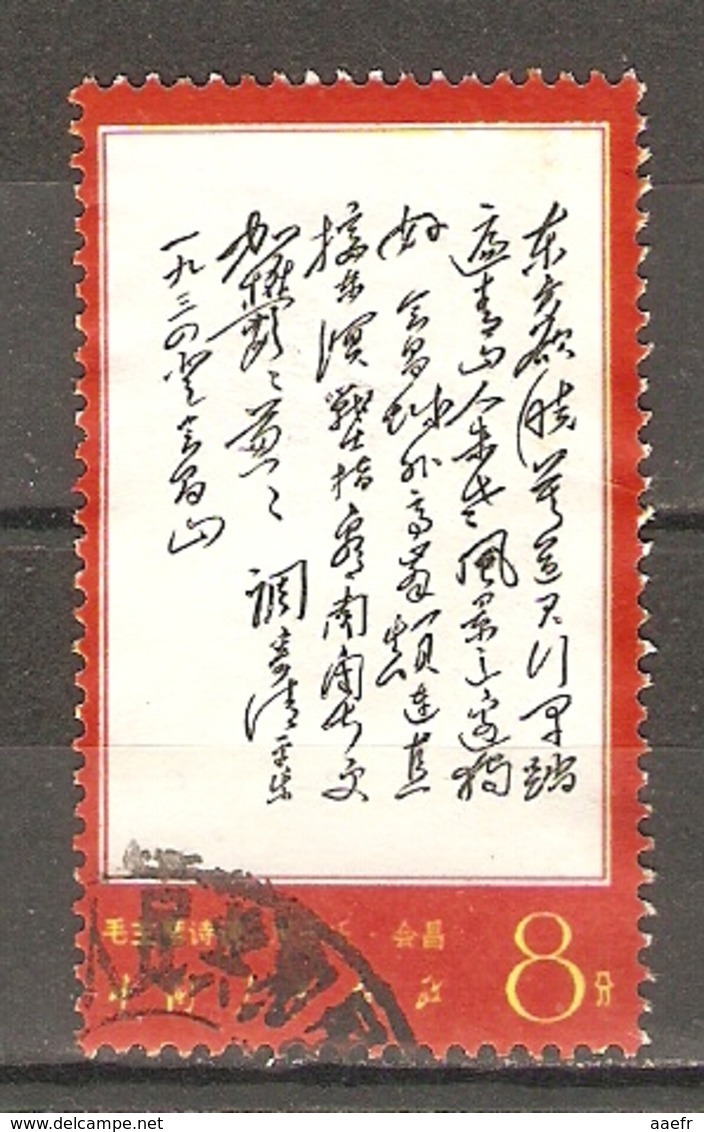 东方欲晓莫道君行早踏
遍青山人未老风景这边独
好 会昌城外高峰颠连直
接东溟战士指看南粤更
加鬱〻葱〻 调寄清平乐
一九三四登会昌山
毛主席诗词 会昌
中国人民邮政 8分
aaefr